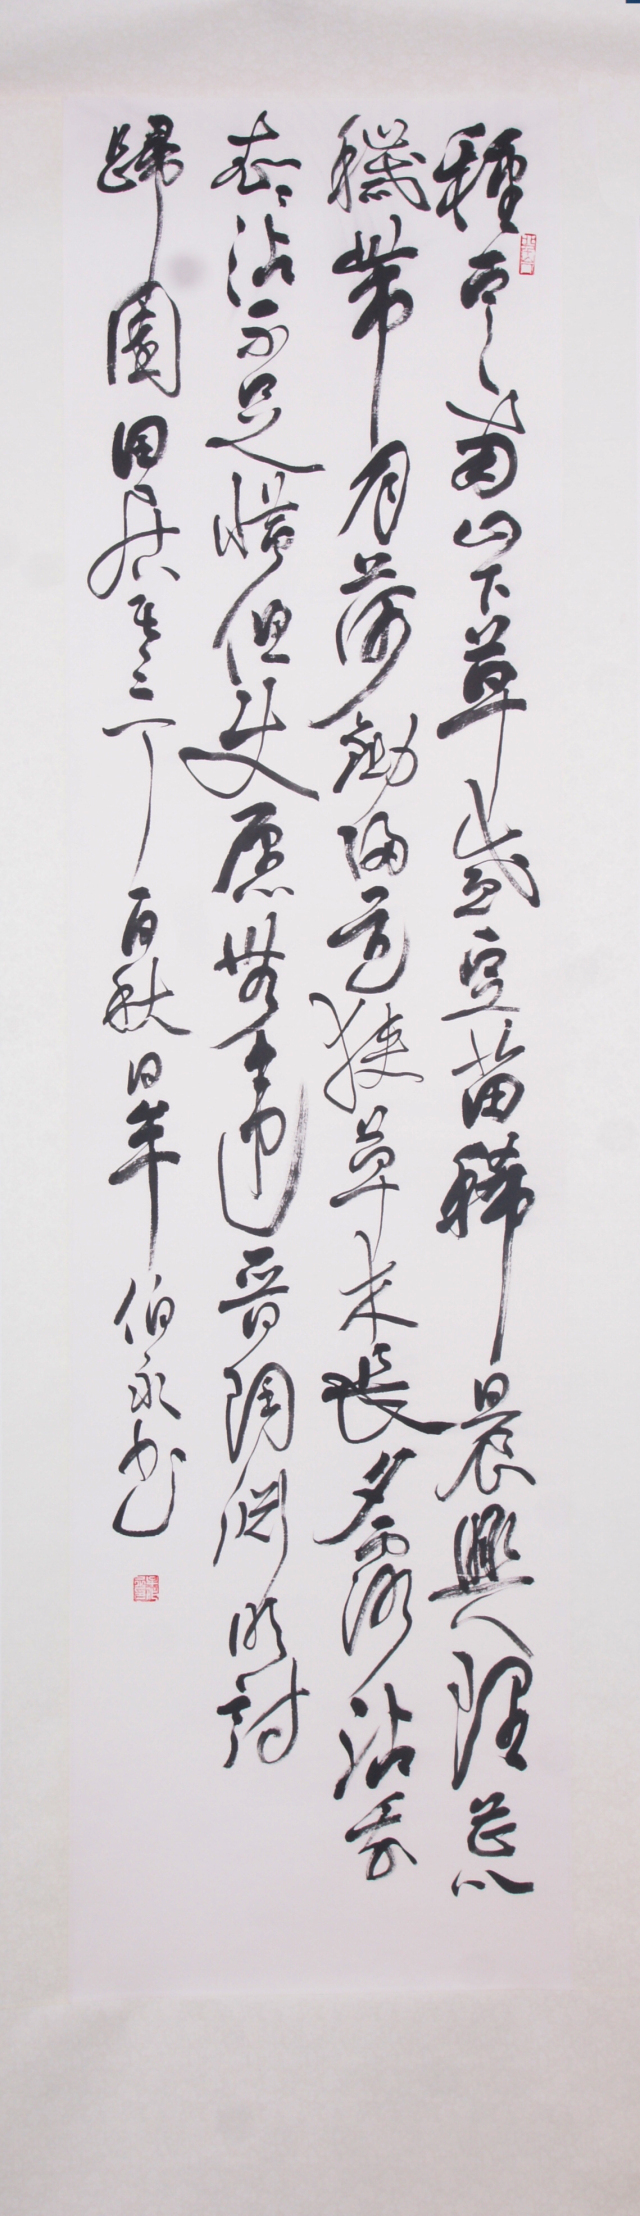 種豆南山下草盛豆苗稀晨興理荒
穢帶月荷鋤歸道狹草木長夕露沾我
衣〻沾不足惜但使愿無違晉陶淵明詩
歸園田居其三丁酉秋日伯永書